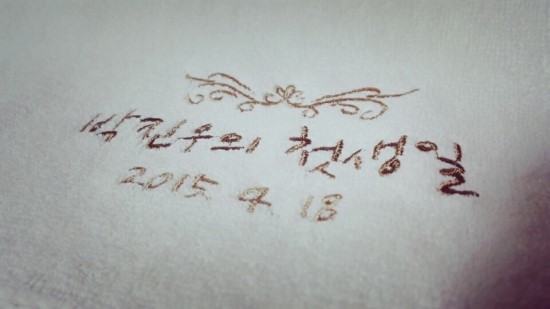 박진우의 첫생일
2015 4 18